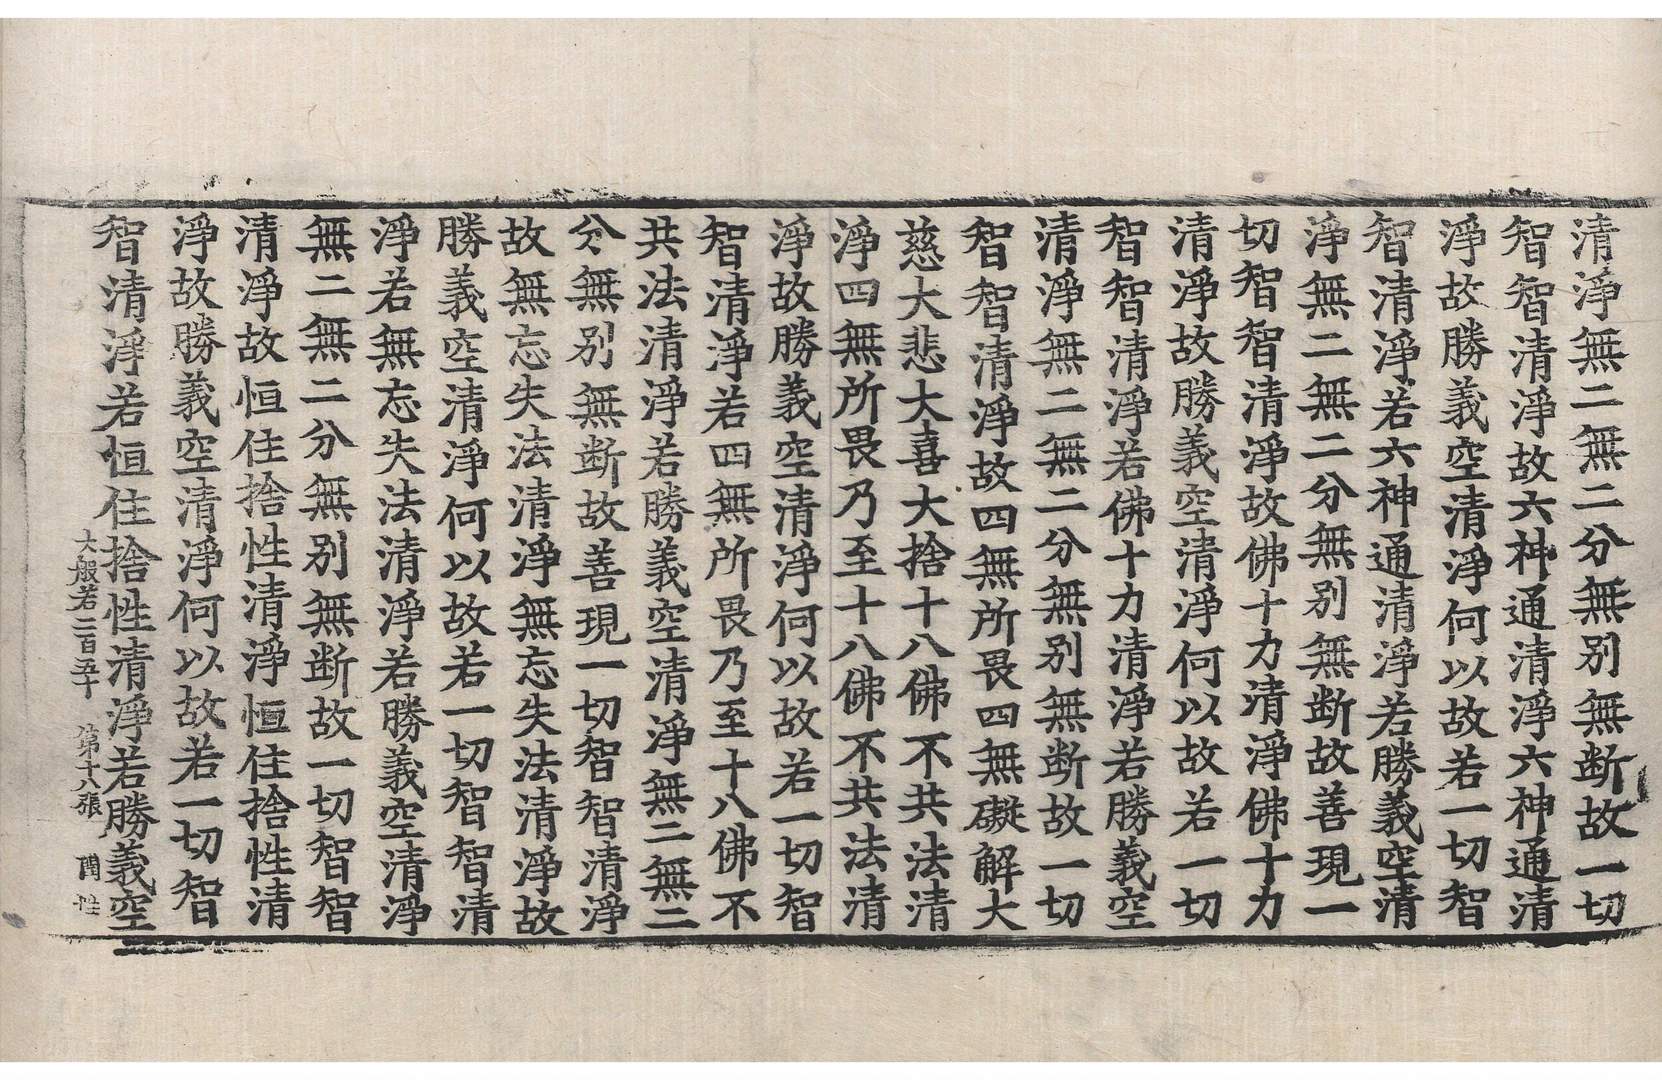 清淨無二無二分無別無断故一切
智智清淨故六神通清淨六神通清
淨故勝義空清淨何以故若一切智
智清淨若六神通清淨若勝義空清
淨無二無二分無別無断故善現一
切智智清淨故佛十力清淨佛十力
清淨故勝義空清淨何以故若一切
智智清淨若佛十力清淨若勝義空
清淨無二無二分無別無断故一切
智智清淨故四無所畏四無礙解大
慈大悲大喜大捨十八佛不共法清
淨四無所畏乃至十八佛不共法清
淨故勝義空清淨何以故若一切智
智清淨若四無所畏乃至十八佛不
共法清淨若勝義空清淨無二無二
分無別無断故善現一切智智清淨
故無忘失法清淨無忘失法清淨故
勝義空清淨何以故若一切智智清
淨若無忘失法清淨若勝義空清淨
無二無二分無別無断故一切智智
清淨故恒住捨性清淨恒住捨性清
淨故勝義空清淨何以故若一切智
智清淨若恒住捨性清淨若勝義空
大般若二百五十 第十八張